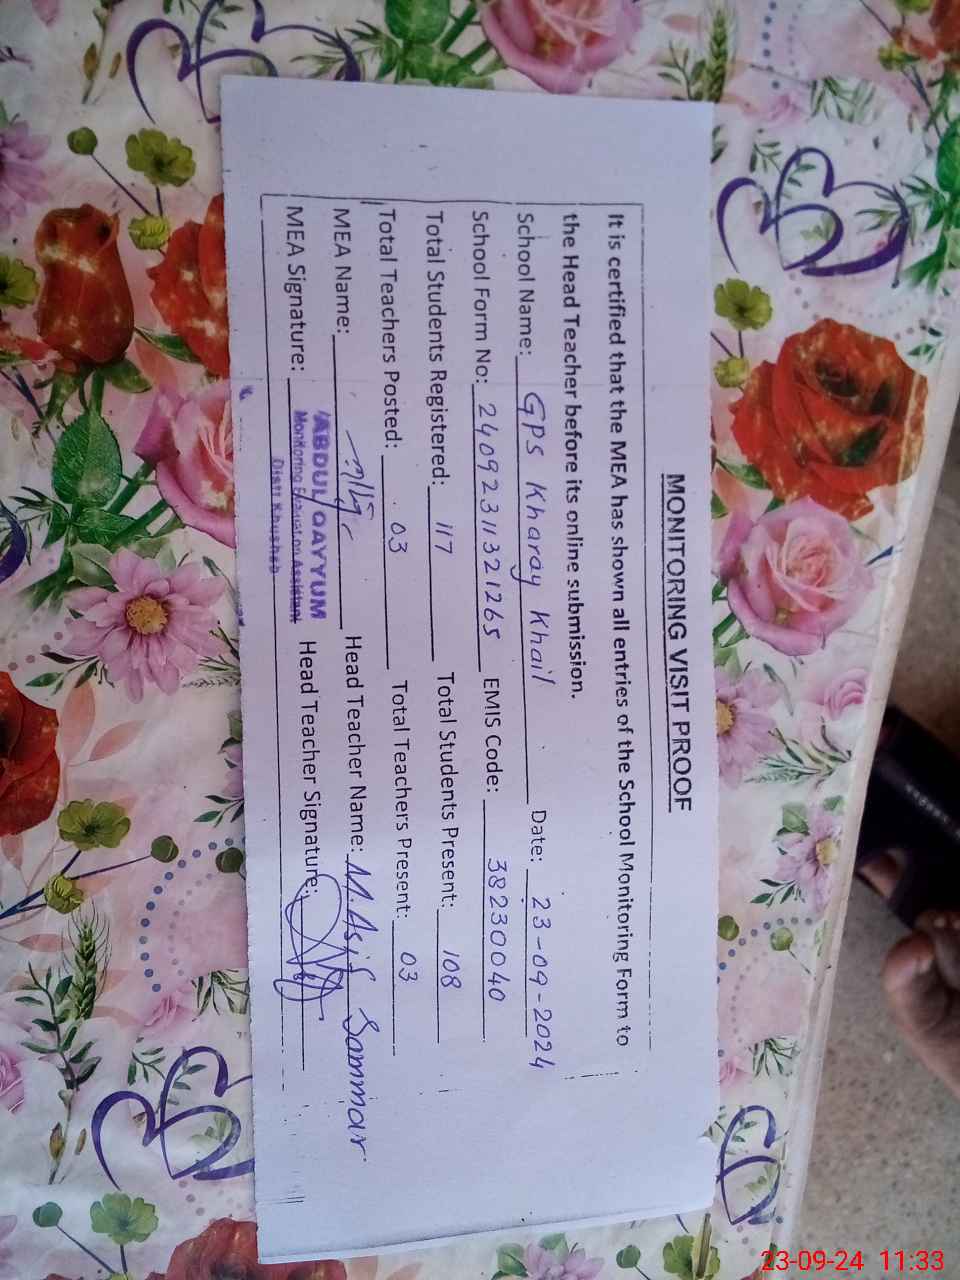 MONITORING VISIT PROOF
It is certified that the MEA has shown all entries of the School Monitoring Form to
the Head Teacher before its online submission.
School Name: GPS Kharay Khail Date: 23-09-2024
School Form No: 24092311321265 EMIS Code: 38230040
Total Students Registered: 117 Total Students Present: 108
Total Teachers Posted: 03 Total Teachers Present: 03
MEA Name: Head Teacher Name: M. Asif Sammar
ABDUL QAYYUM
MEA Signature: Head Teacher Signature:
Monitoring Evaluation Assistant
Distt Khushab
23-09-24 11:33